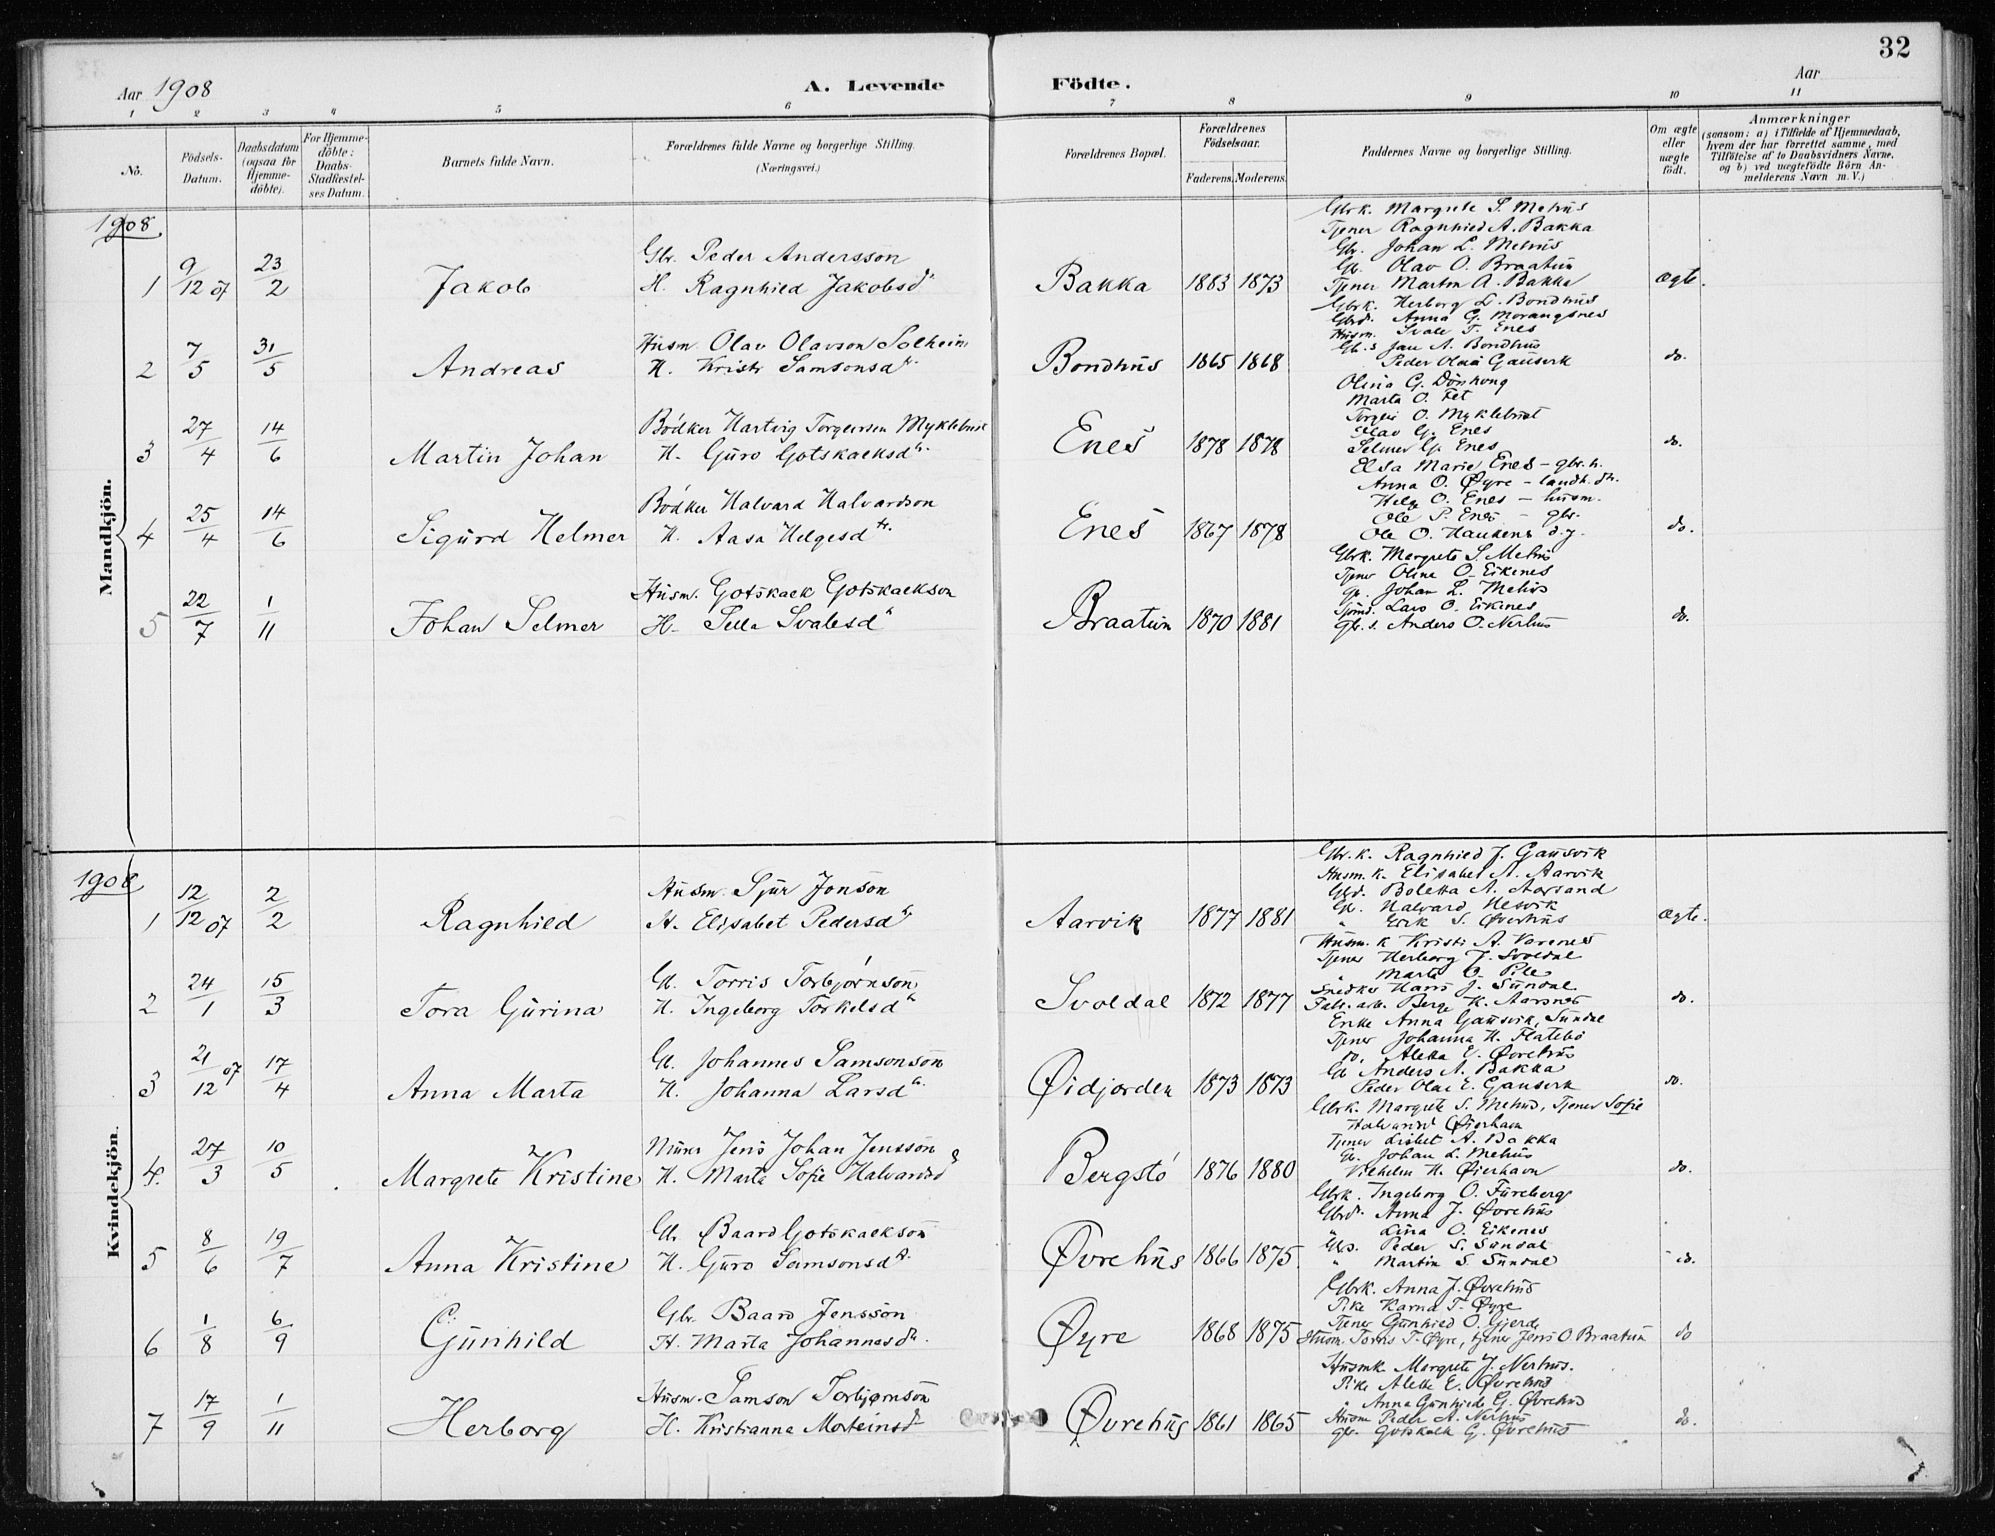 32
Aar 1908
A. Levende Födte.
Aar
1 2 3 4 5 6 7 8 9 10 11
No.
Födsels-Datum.
Daabsdatum (ogsaa for Hjemme-döbte).
For Hjemme-döbte: Daabs-Stadfæstel-ses Datum.
Barnets fulde Navn.
Forældrenes fulde Navne og borgerlige Stilling. (Næringsvei.)
Forældrenes Bopæl.
Forældrenes Födselsaar.
Faderens. Moderens.
Faddernes Navne og borgerlige Stilling.
Om ægte eller uægte födt.
Anmærkninger
(saasom: a) i Tilfælde af Hjemmedaab, hvem der har forrettet samme, med Tilföielse af to Daabsvidners Navne, og b) ved uægtefödte Börn An-melderens Navn m. V.)
Mandkjön.
1908
1 9/12 07 23/2 Jakob
Gbr. Peder Andersson
H. Ragnhild Jakobsdr
Bakka 1883 1873
Gbrk. Margrete S. Mehus
Tjener Ragnhild A. Bakka
Gbr. Johan L. Mehus
Gbr. Olav O. Braatun
Tjener Martin A. Bakka
Ægte.
2 7/5 31/5 Andreas
Husm. Olav Olavson Solheim
H. Kristi Samsonsdtr.
Bondhus 1865 1868
Gbrk. Herborg L. Bondhus
Gbrd. Anna G. Morangsnes
Husm. Svale T. Enes
Gb.s Jan A. Bondhus
Peder Olai Gauserk
do.
3 27/4 14/6 Martin Johan
Bödker Hartvig Torgersen Myklebust
H. Guro Gotskalksdtr.
Enes 1878 1878
Olina G. Dönhoug
Marta O. Fet
Torgeir O. Myklebust
Olav G. Enes
Selmer G. Enes
do.
4 25/4 14/6 Sigurd Helmer
Bödker Halvard Halvardson
H. Aasa Helgesdtr.
Enes 1867 1878
Elsa Marie Enes - gbr. h.
Anna O. Øyre - landh. dtr.
Helge O. Enes - husm.
Ole P. Enes - gbr.
Ole O. Haukenes d.y.
do.
5 22/7 1/11 Johan Selmer
Husm. Gotskalk Gotskalkson
H. Sella Svalesdtr
Braatun 1870 1881
Gbrk. Margrete S. Mehus
Tjener Olina O. Eikenes
Gbr. Johan L. Mehus
Lars O. Eikenes
gbr.s. Anders O. Nerhus
do.
Kvindekjön.
1908
1 12/12 07 2/2 Ragnhild
Husm. Sjur Jonson
H. Elisabet Pedersdtr
Aarvik 1877 1881
Gbr.k. Ragnhild J. Gausvik
Husm.k. Elisabet A. Aarvik
Gbd. Boletta A. Aarsand
Gbr. Halvard Nesvik
" Erik S. Øvrehus
Ægte.
2 24/1 15/3 Tora Gurina
Gb. Torris Torbjørnson
H. Ingeborg Torkelsdtr
Svoldal 1872 1877
Husm.k Kristi A. Varenes
Tjener Herborg J. Svoldal
" Marta O. Pile
Snedker Hans J. Sundal
Fabr.arb. Berge K. Aarsnes
do.
3 21/12 07 17/4 Anna Marta
Gb. Johannes Samsonson
H. Johanna Larsdtr.
Øidjorden 1873 1873
Enke Anna Gausvik, Sundal
Tjener Johanna H. Flatebø
do. Aletta E. Øvrehus
Gb Anders A. Bakka
Peder Olai E. Gauserk
do.
4. 27/3 10/5 Margrete Kristine
Murer Jens Johan Jensson
H. Marta Sofie Halvardsd
Bergstö 1876 1880
Gbrk. Margrete S. Mehus, Tjener Sofie
Halvardsd Øierhavn
Tjener Lisbet A. Bakka
Gb. Johan L. Mehus
Vilhelm H. Øierhavn
do.
5 8/6 19/7 Anna Kristine
Gb. Baard Gotskalkson
H. Guro Samsonsdtr.
Øvrehus 1866 1875
Gbrk. Ingeborg O. Fureberg
Gbrd. Anna J. Øvrehus
" Lina O. Eikenes
Gbs. Peder S. Sundal
" Martin S. Sundal
do.
6 1/8 6/9 Gunhild
Gbr. Baard Jensson
H. Marta Johannesdtr.
Øyre 1868 1875
Gbrk. Anna J. Øvrehus
Pike Karna T. Øyre
Tjener Gunhild O. Gjerde
Husm. Torris T. Øyre, tjener Jens O Braatun
do
7 17/9 1/11 Herborg
Husm. Samson Torbjørnson
H. Kristianna Morteinsdtr
Øvrehus 1861 1865
Husmk. Margrete J. Nerhus.
Pike Aletta E. Øvrehus
" Anna Gunhilde G. Øvrehus
Husm Peder A. Nerhus
gbr. Gotskalk G. Øvrehus
do.